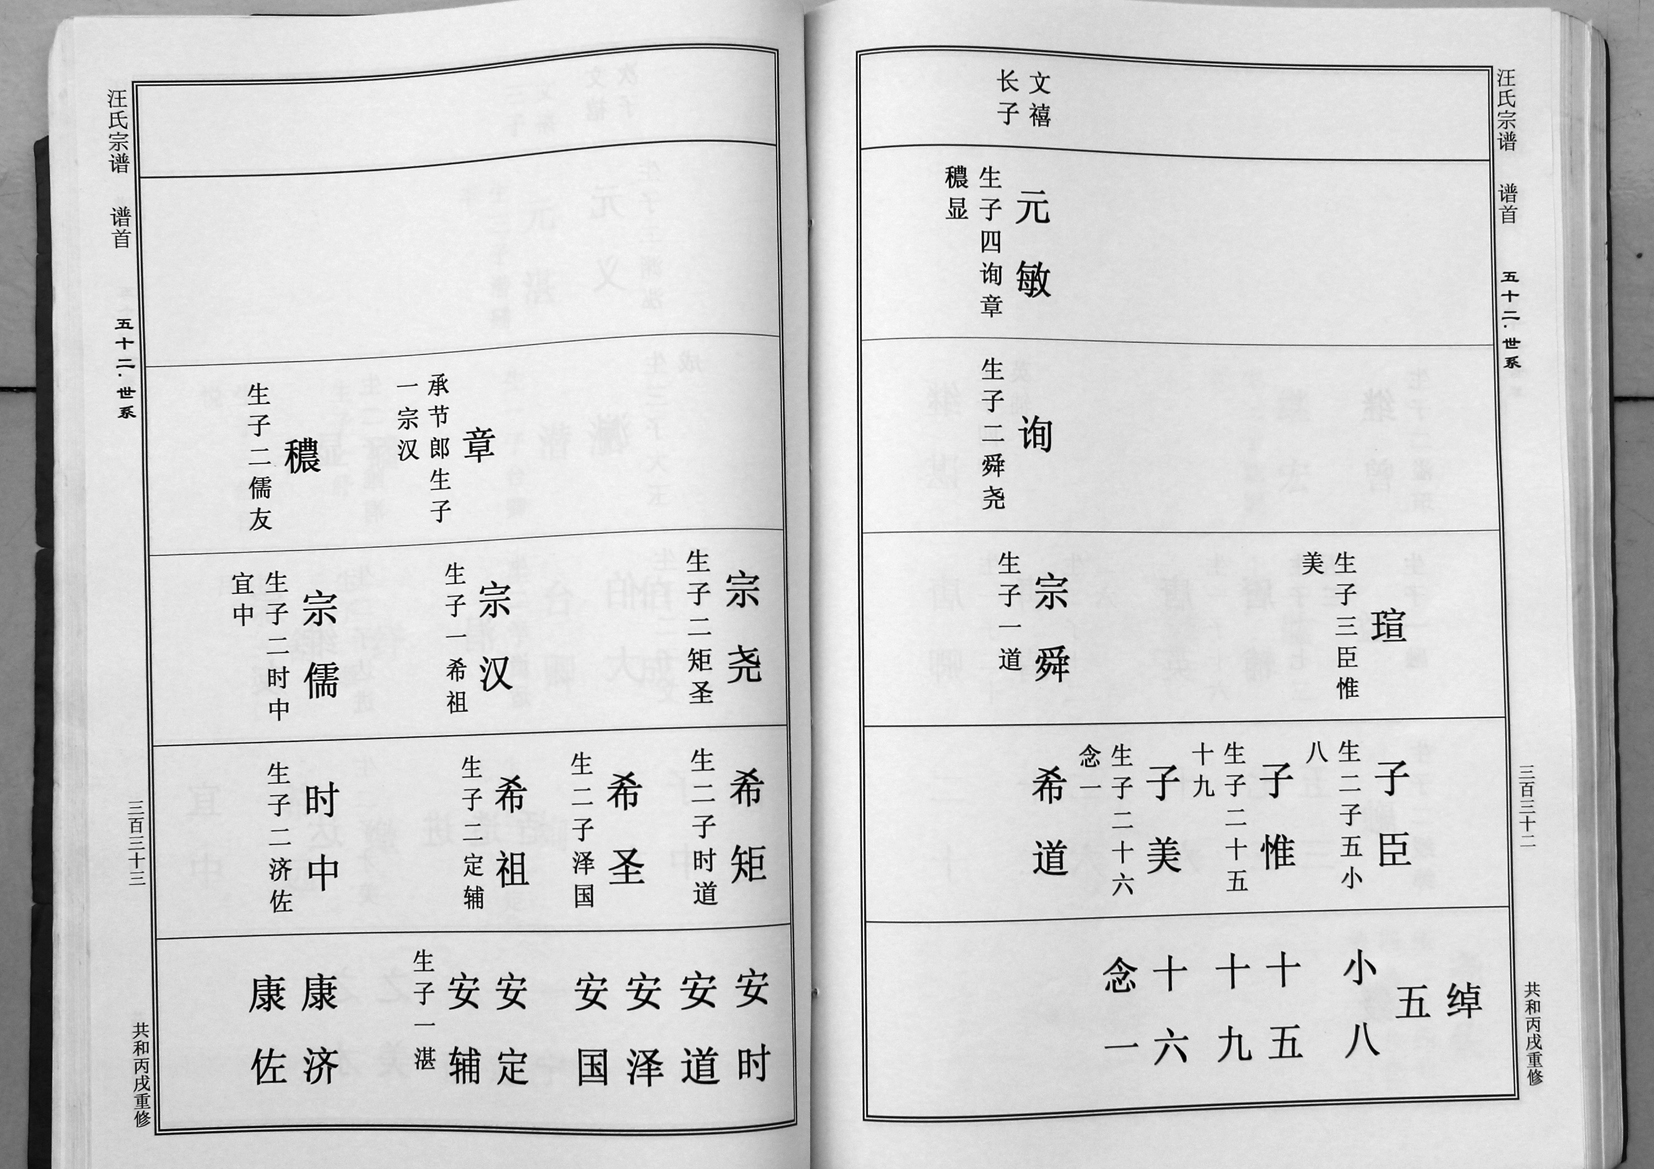 汪氏宗谱 谱首 五十二·世系 三百三十二 共和丙戌重修
文禧
长子
元敏
生子四询章
穠显
询
生子二舜尧
瑄
生子三臣惟
美
宗舜
生子一道
子臣
生二子五小
八
子惟
生子二十五
十九
子美
生子二十六
念一
希道
绰
五
小八
十五
十九
十六
念一
宗尧
生子二矩圣
章
承节郎生子
一宗汉
宗汉
生子一希祖
穠
生子二儒友
宗儒
生子二时中
宜中
希矩
生二子时道
希圣
生二子泽国
希祖
生子二定辅
时中
生子二济佐
安时
安道
安泽
安国
安定
安辅
生子一湛
康济
康佐
汪氏宗谱 谱首 五十二·世系 三百三十三 共和丙戌重修